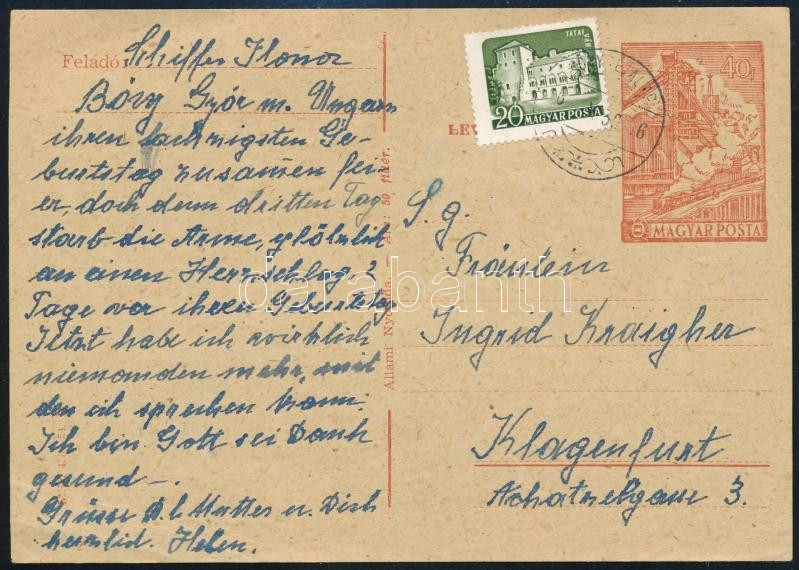 Feladó: Schiffer Ilona
Bőny Győr m. Ungarn
ihren sechzigsten Ge-
burtstag zusamen fei-
er, doch denn dritten Tag
starb die Arme, plötzlich
an einen Herzschlag 2
Tage vor ihren Geburtstag
Jetzt habe ich wirklich
niemanden mehr, mit
den ich sprechen kann.
Ich bin Gott sei Dank
gesund –.
Grüsse d. l. Mutter u. Dich
herzlich. Helen.
Állami Nyomda. — Ára: 50 fillér.
TATAI
VÁR
20 MAGYAR POSTA
40f
MAGYAR POSTA
S. g.
Fräulein
Ingrid Kraigher
Klagenfurt
Achatzelgasse 3.
darabanth